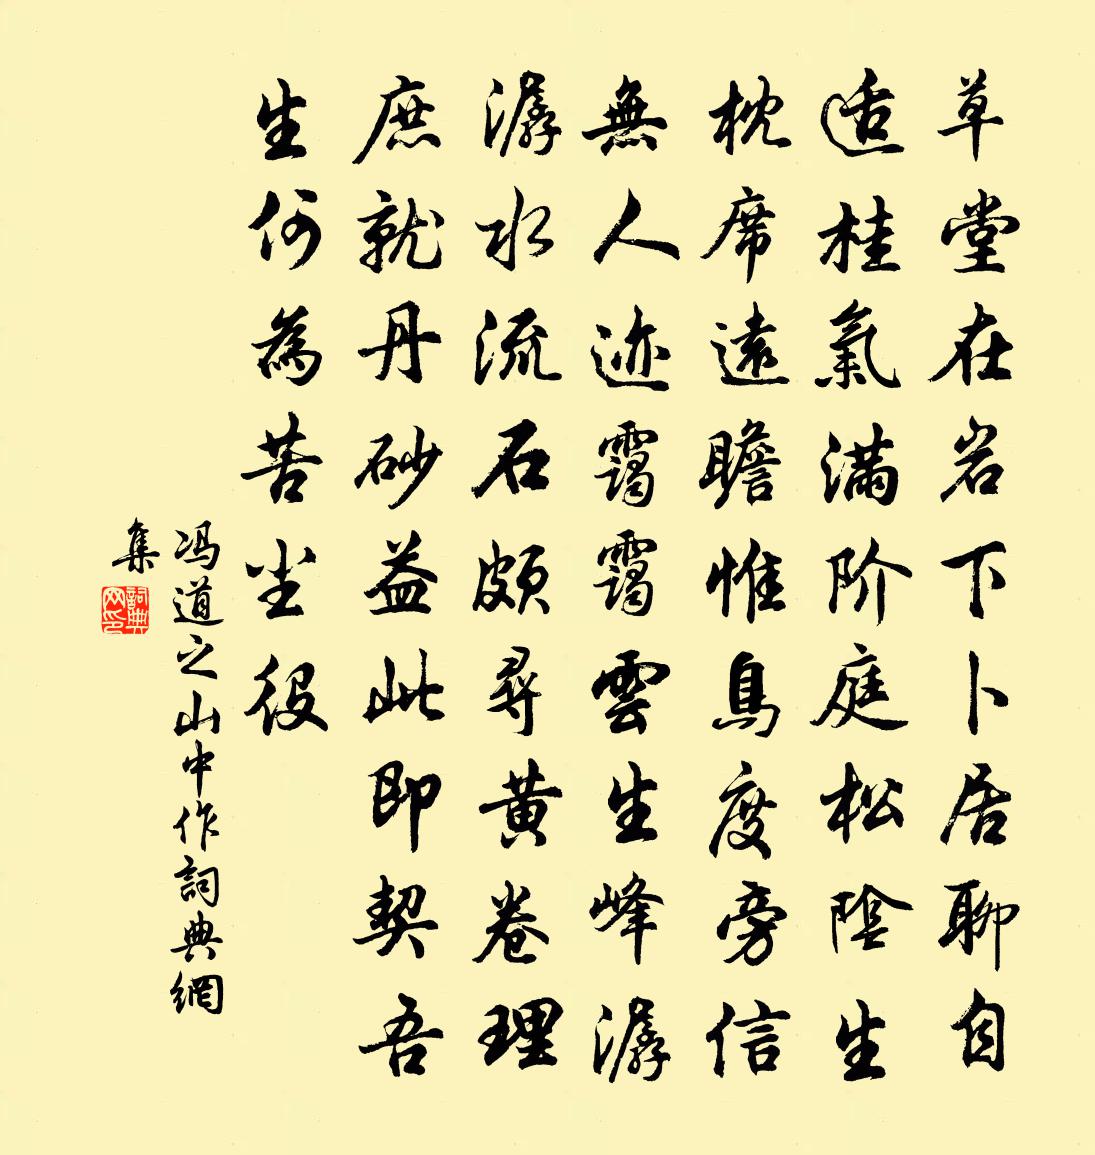 草堂在岩下卜居聊自
适桂氣滿阶庭松陰生
枕席遠瞻惟鳥度旁信
無人迹靄靄雲生峰潺
潺水流石頗尋黄卷理
庶就丹砂益此即契吾
生何為苦尘役
冯道之山中作詞典網
集
詞典网印